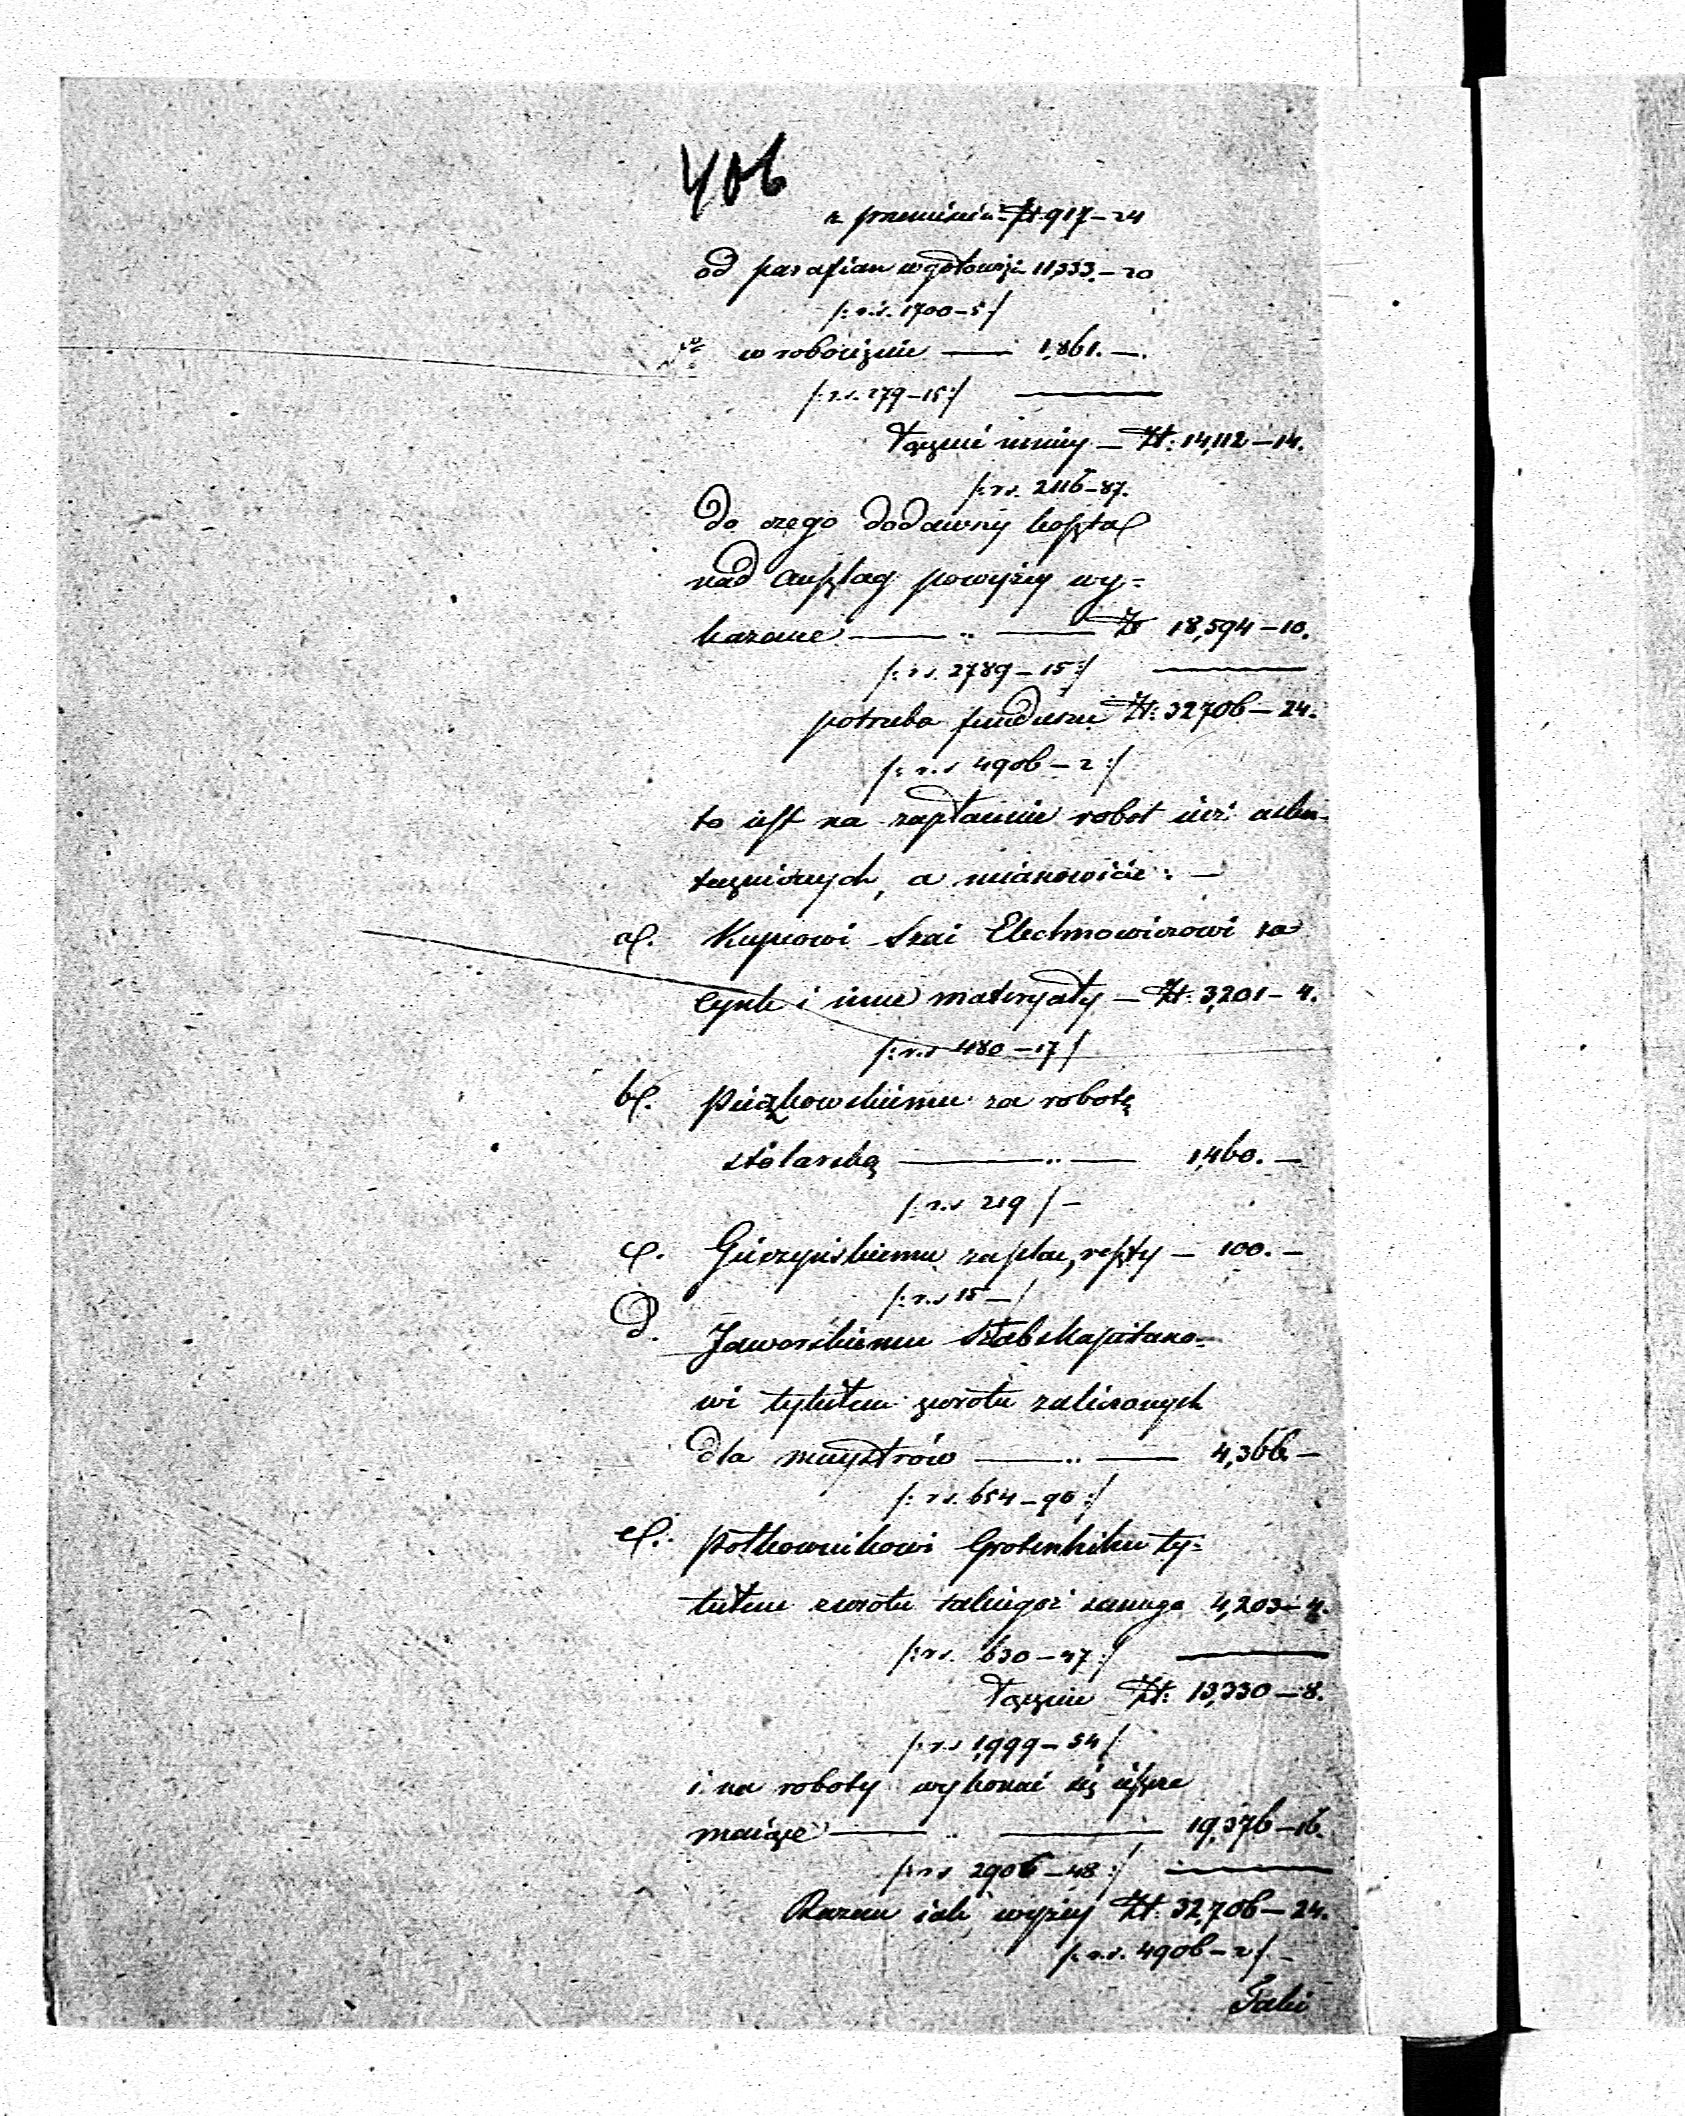 406
z przeniesie: Zł. 917–24
od parafian w gotowiźn 11,333.–20
/: r.s. 1700–5 :/
w robociźnie —— 1,861. —.
/: r.s. 279–15 :/
Łącznie umiey — Zł: 14,112 –14.
/: r.s. 2116–87.
do czego dodawszy koszta
nad anszlag powyżey wy=
kazane —— „ —— Zł 18,594–10.
/: r.s. 2789–15 :/
potrzeba funduszu Zł: 32,706–24.
/: r.s 4906–2 :/
to iest na zapłacenie robot już usku-
tecznionych, a mianowicie: —
a/. Kupcowi Szai Elechnowiczowi za
Cynk i inne materyały — Zł: 3,201–4.
/: r.s 480–17 /
b/. Pieczkowskiemu za robotę
stolarską —— „ —— 1,460. —
/: r.s 219 / –
c/. Gieczyńskiemu za plac, reszty — 100. —
/: r.s 15 — /
d. Jaworskiemu Sztabskapitano-
wi tytułem zwrotu zaliczonych
dla maystrów —— „ —— 4,366. —
/: r.s. 654–90 :/
e/. Półkownikowi Grotenhielm ty=
tułem zwrotu takiegoż samego 4,203–4.
/: r.s. 630–47 :/
Łącznie Zł: 13,330–8.
/: r.s 1,999–54 /
i na roboty wykonać się ieszcze
maiące —— „ —— 19,376–16.
/: r.s 2906–48 :/
Razem iak wyżey Zł: 32,706–24.
/: r.s. 4906–2 /. –
Taki